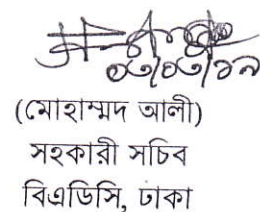 (মোহাম্মদ আলী)
সহকারী সচিব
বিএডিসি, ঢাকা